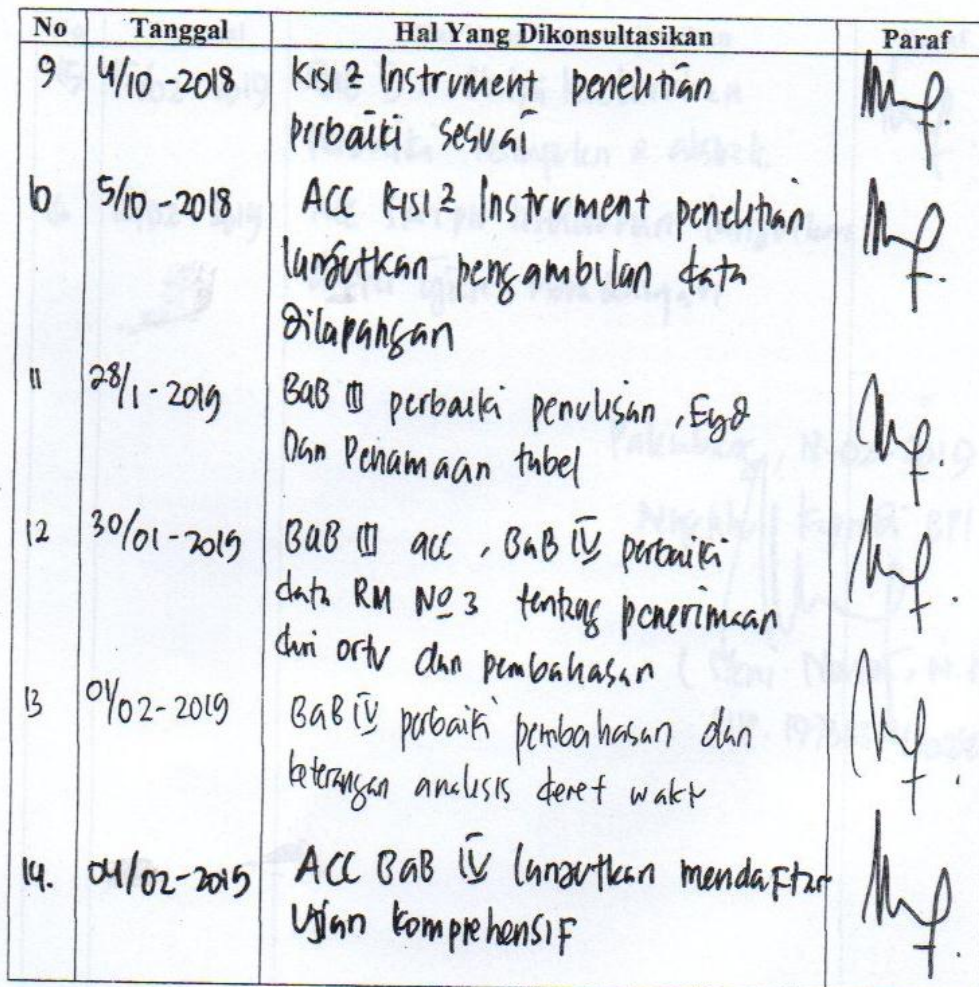 No Tanggal Hal Yang Dikonsultasikan Paraf
9 4/10-2018 Kisi2 Instrument penelitian
perbaiki sesuai
10 5/10-2018 ACC Kisi2 Instrument penelitian
lanjutkan pengambilan data
dilapangan
11 28/1-2019 BaB III perbaiki penulisan, Eyd
Dan Penamaan tabel
12 30/01-2019 BaB III acc, BaB IV perbaiki
data RM No 3 tentang penerimaan
diri ortu dan pembahasan
13 01/02-2019 BaB IV perbaiki pembahasan dan
keterangan analisis deret waktu
14. 04/02-2019 ACC BaB IV lanjutkan mendaftar
Ujian Komprehensif